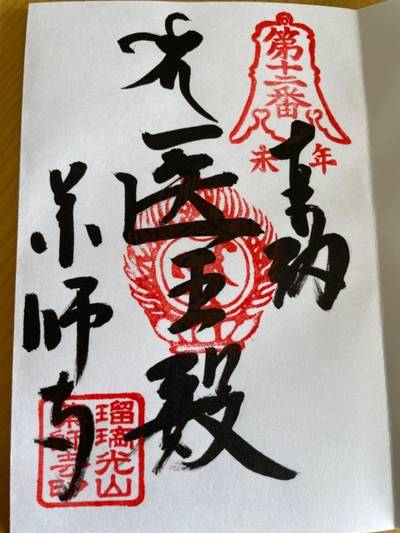 第十二番
未年
奉納
医王殿
薬師寺
瑠璃光山
薬師寺印